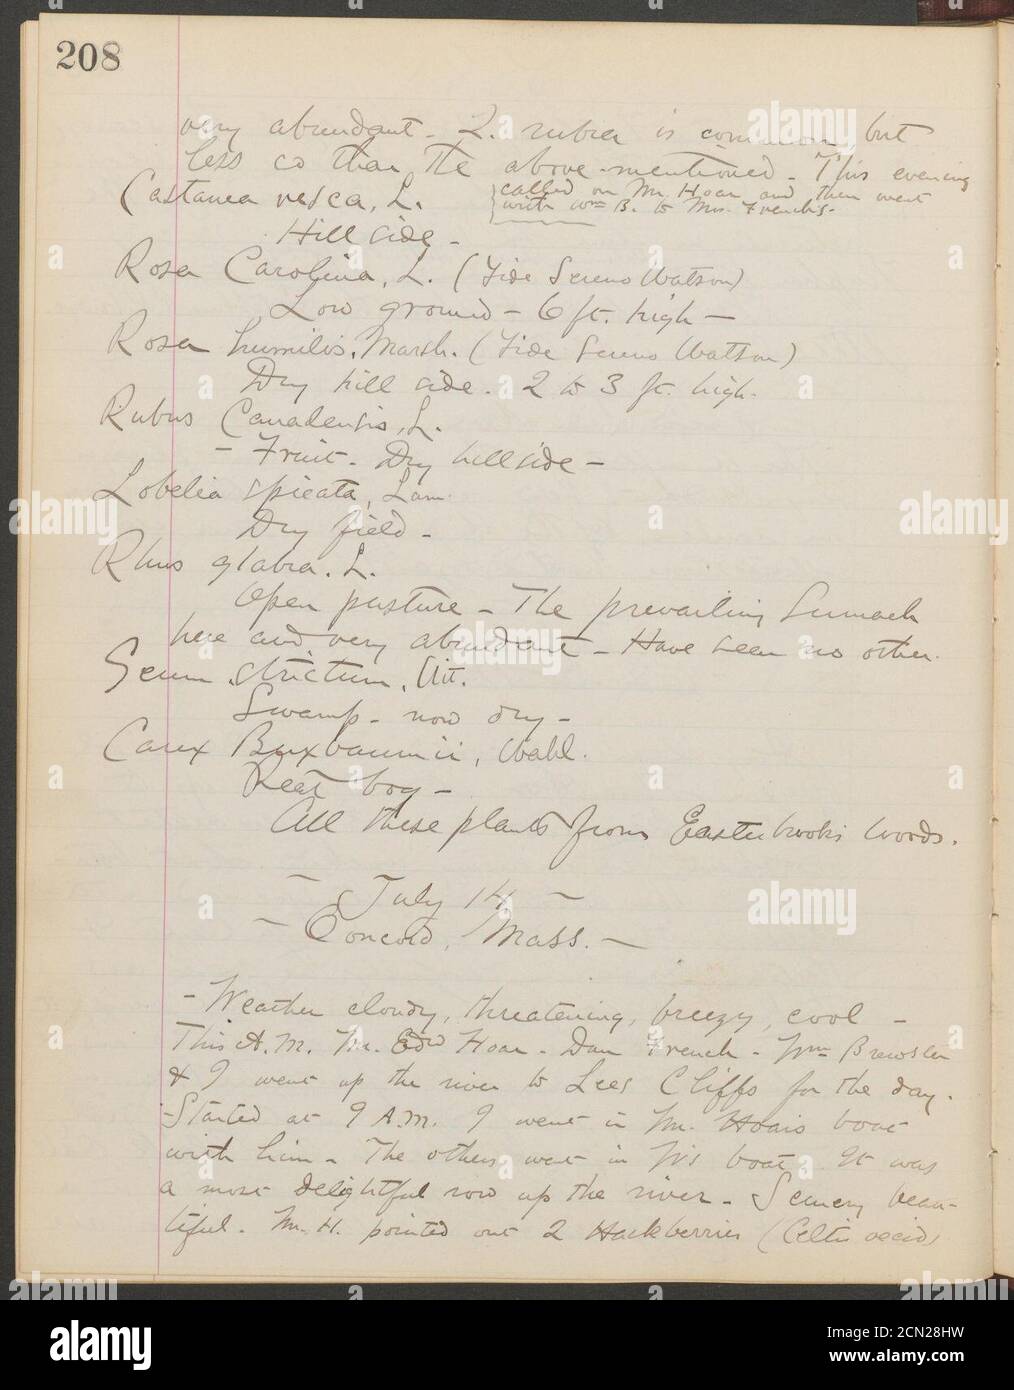 208
very abundant - Q. rubra is common but
less so than the above-mentioned - This evening
called on Mr. Hoar and then went
Castanea vesca, L.
with Wm B. to Mrs. French's -
Hill side -
Rosa Carolina, L. (Fide Sereno Watson)
Low ground - 6 ft. high -
Rosa humilis, Marsh. (Fide Sereno Watson)
Dry hill side. 2 to 3 ft. high.
Rubus Canadensis, L.
- Fruit - Dry hillside -
Lobelia spicata, Lam.
Dry field -
Rhus glabra. L.
Open pasture - The prevailing Sumach
here and very abundant - Have seen no other.
Geum strictum, Ait.
Swamp - now dry -
Carex Buxbaumii, Wahl.
Peat bog -
All these plants from Easterbrook's Woods.
- July 14. -
- Concord, Mass. -
- Weather cloudy, threatening, breezy, cool -
This A.M. Mr. Edw Hoar - Dan French - Wm Brewster
& I went up the river to Lees Cliffs for the day.
Started at 9 A.M. I went in Mr. Hoar's boat
with him - The others went in W's boat. It was
a most delightful row up the river - Scenery beau-
tiful. Mr. H. pointed out 2 Hackberries (Celtis occid)
alamy
2CN28HW
www.alamy.com